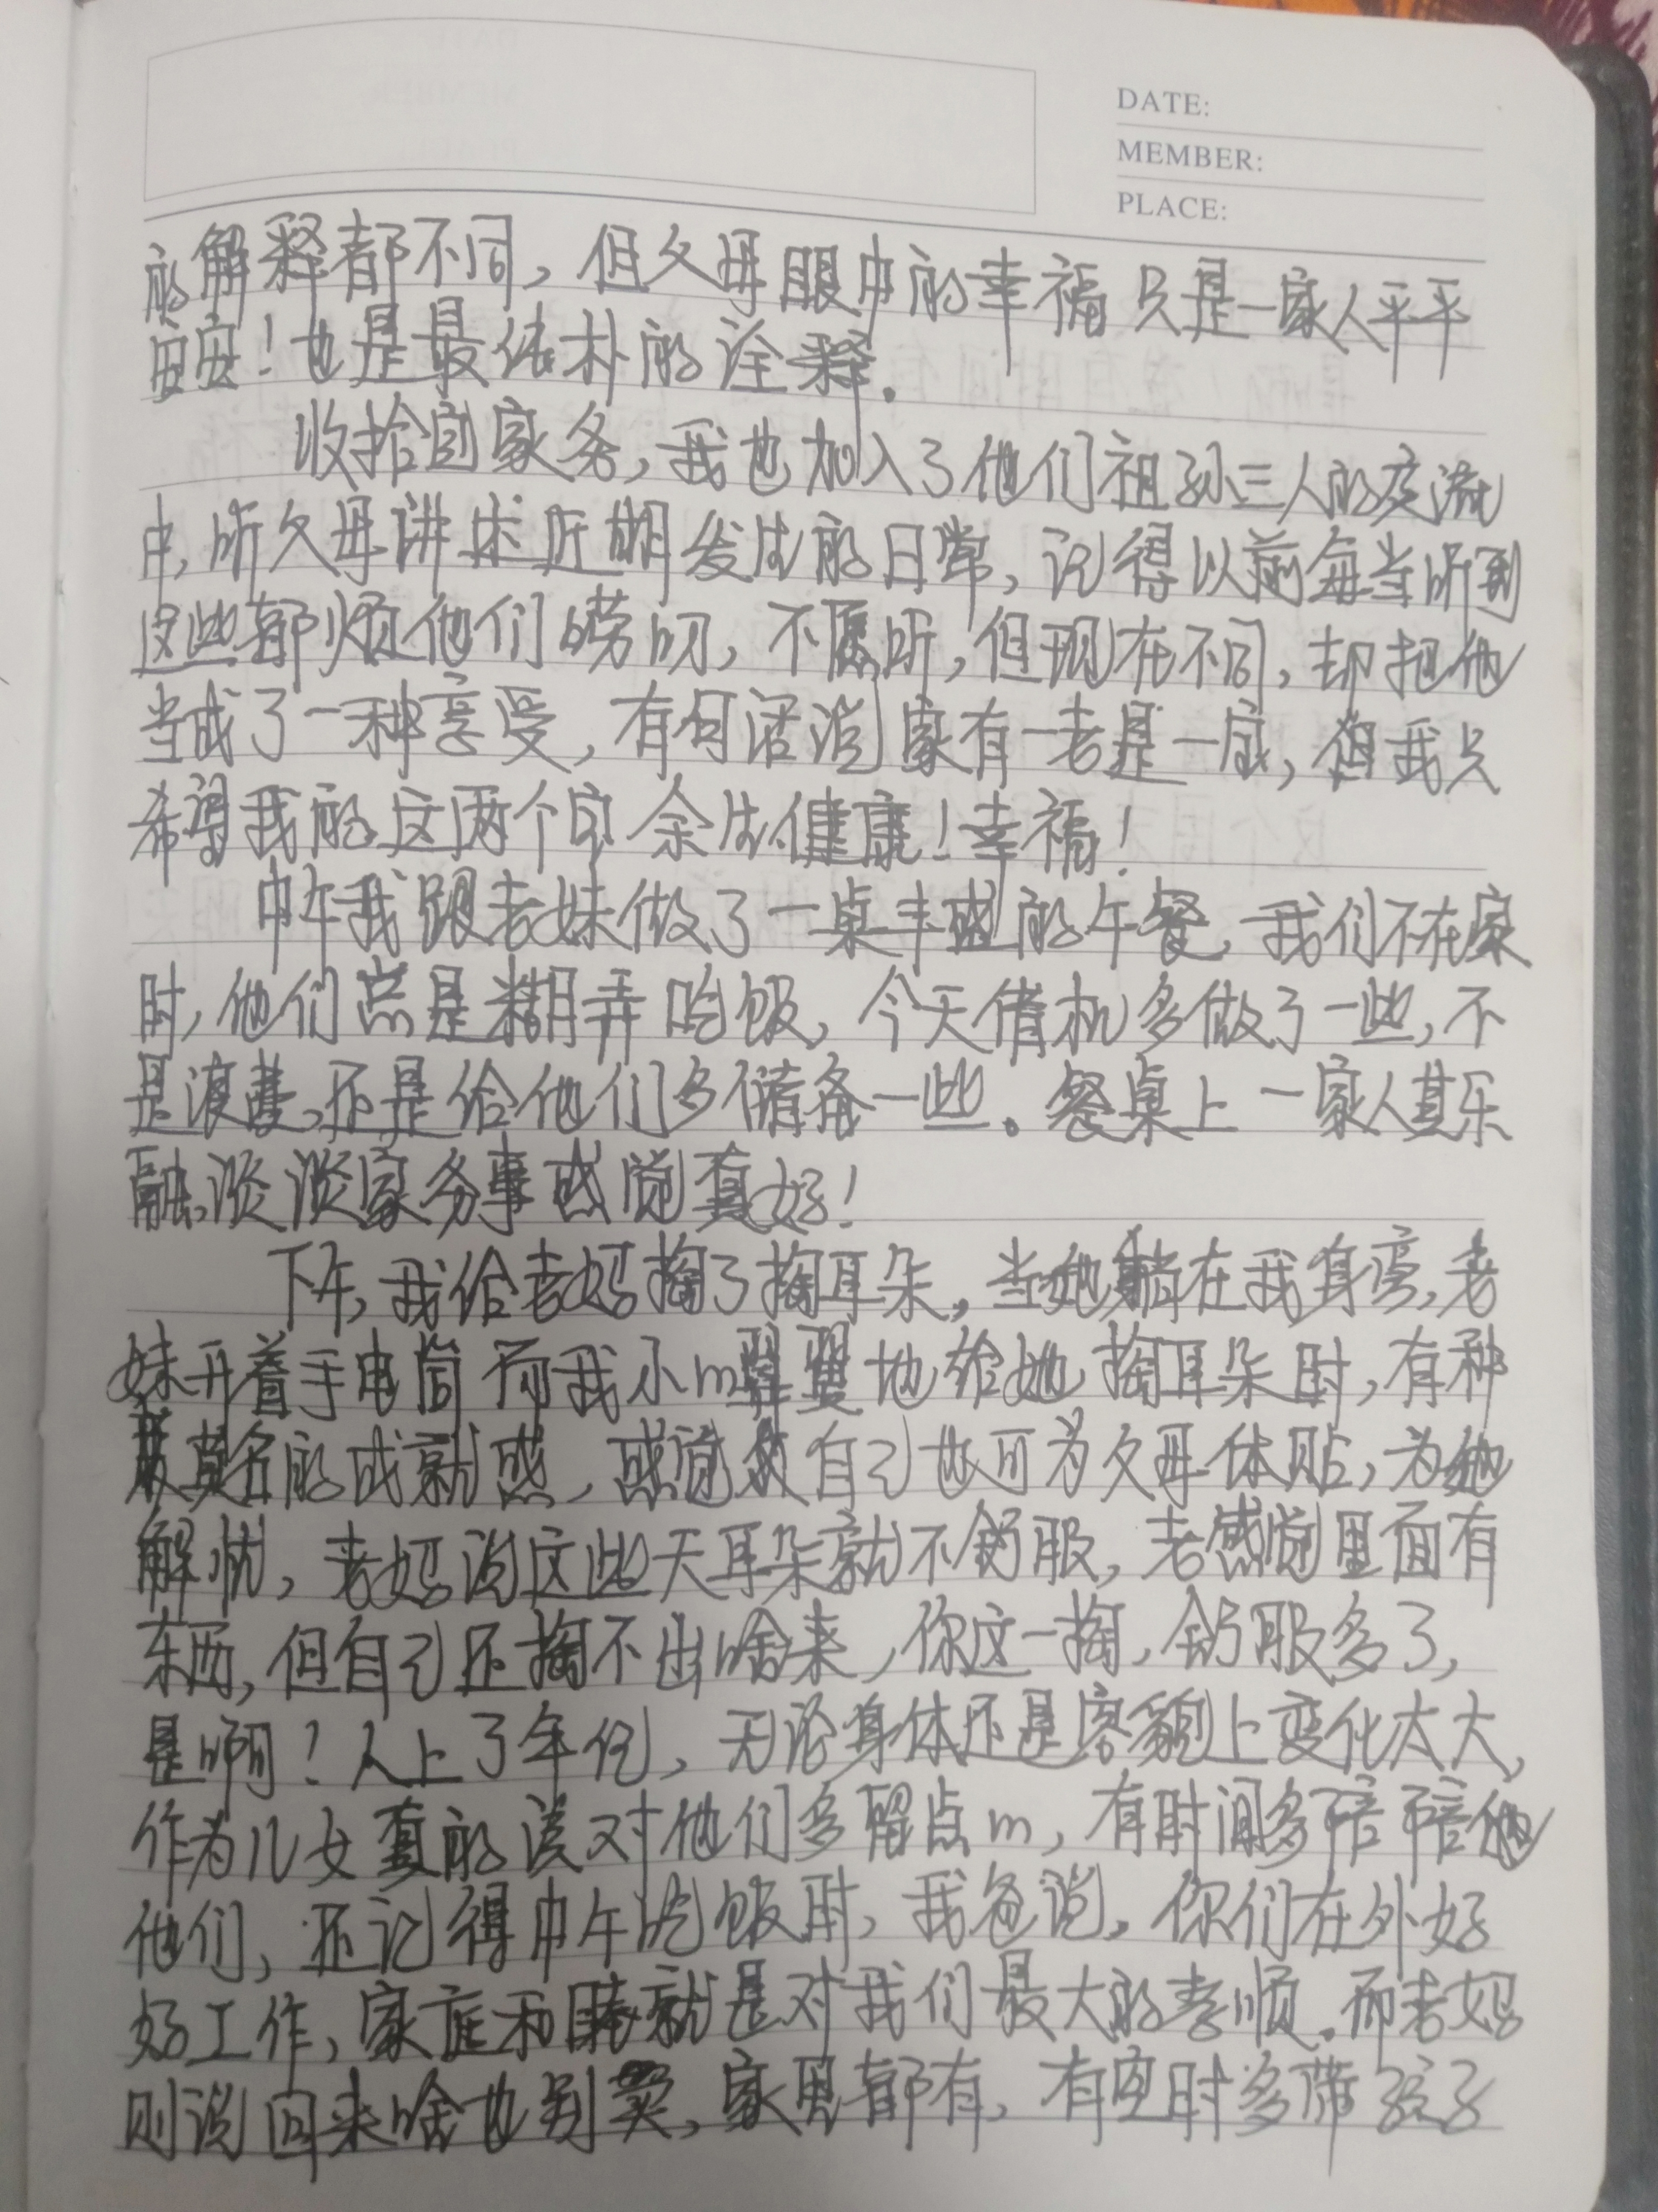 DATE:
MEMBER:
PLACE:
的解释都不同，但父母眼中的幸福只是一家人平平
安安！也是最佳朴的诠释。
收拾完家务，我也加入了他们祖孙三人的交流
中，听父母讲述近期发生的日常，记得以前每当听到
这些都烦他们唠叨，不愿听，但现在不同，却把他
当成了一种享受，有句话说家有一老是一宝，但我只
希望我的这两个宝余生健康！幸福！
中午我跟老妹做了一桌丰盛的午餐，我们不在家
时，他们总是糊弄吃饭，今天借机多做了一些，不
是浪费，还是给他们多储备一些。餐桌上一家人其乐
融，谈谈家务事感觉真好！
下午，我给老妈掏了掏耳朵，当她躺在我身旁，老
妹开着手电筒而我小心翼翼地给她掏耳朵时，有种
莫名的成就感，感觉自己也可为父母体贴，为她
解忧，老妈说这些天耳朵就不舒服，老感觉里面有
东西，但自己还掏不出啥来，你这一掏，舒服多了，
是啊！人上了年纪，无论身体还是容貌上变化太大，
作为儿女真的该对他们多留点心，有时间多陪陪他
他们，还记得中午吃饭时，我爸说，你们在外好
好工作，家庭和睦就是对我们最大的孝顺。而老妈
则说回来啥也别买，家里都有，有空时多带孩子